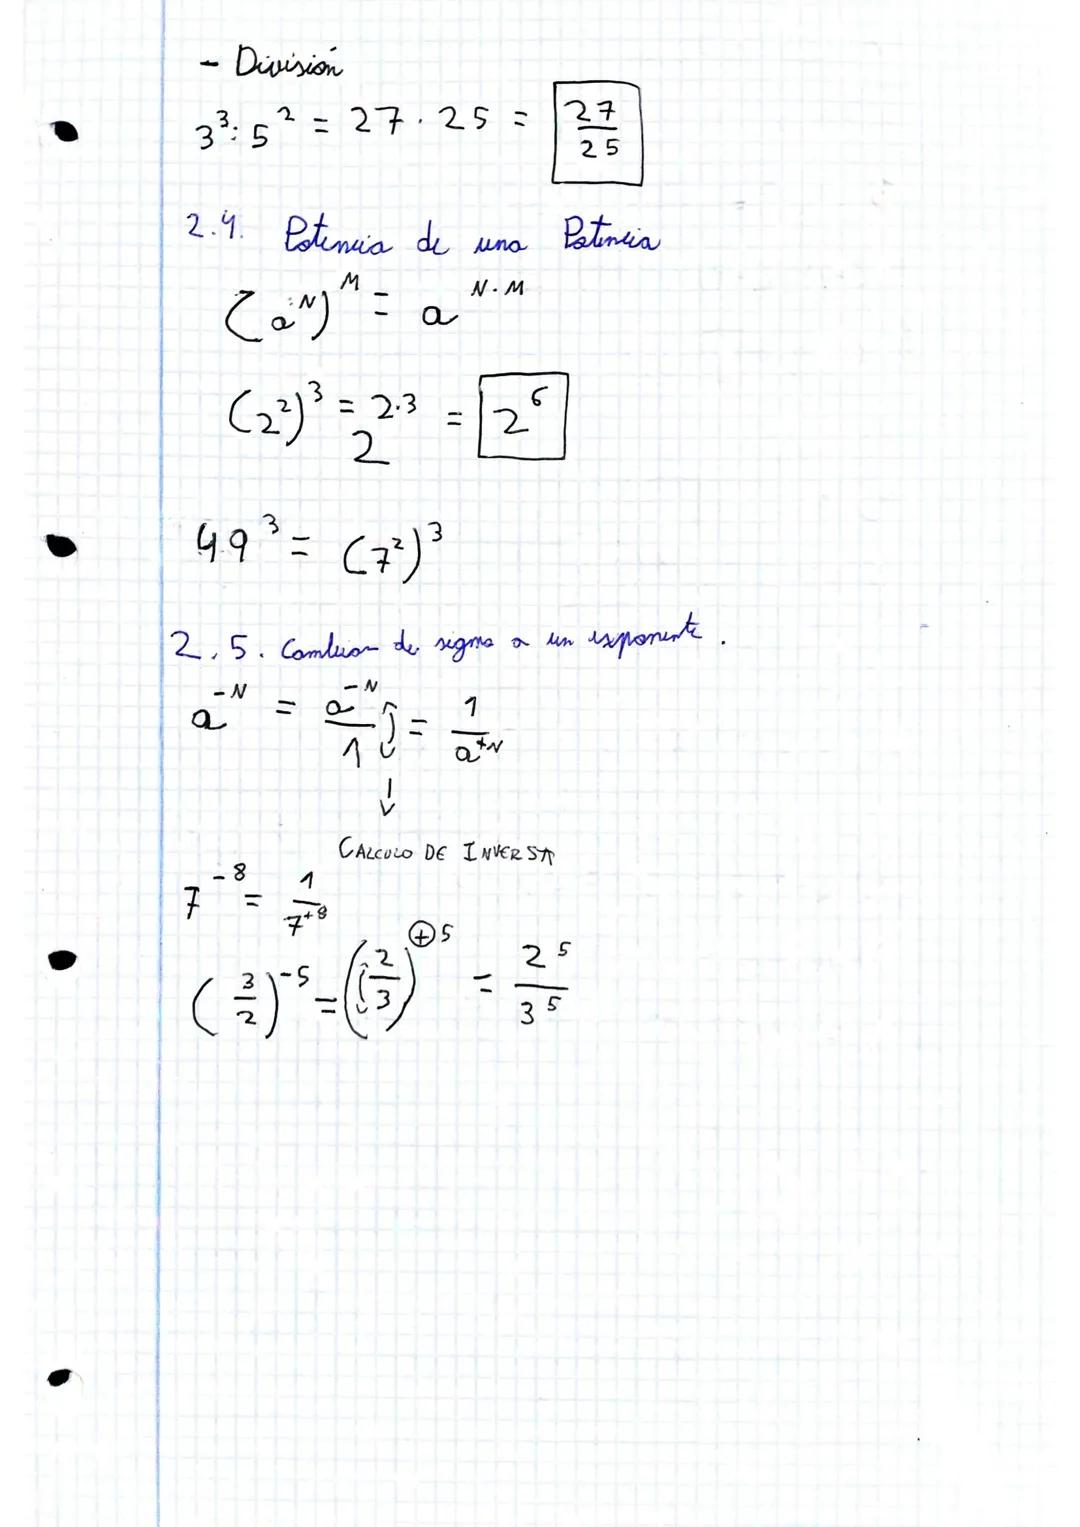 - División
3³: 5² = 27 . 25 = 27/25
2.4. Potencia de una Potencia
(a^N)^M = a^N·M
(2²)³ = 2^2·3 = 2⁶
49³ = (7²)³
2.5. Cambiar de signo a un exponente.
a^-N = a^-N/1 = 1/a^+N
CALCULO DE INVERSA
7^-8 = 1/7^+8
(3/2)^-5 = (2/3)^+5 = 2⁵/3⁵